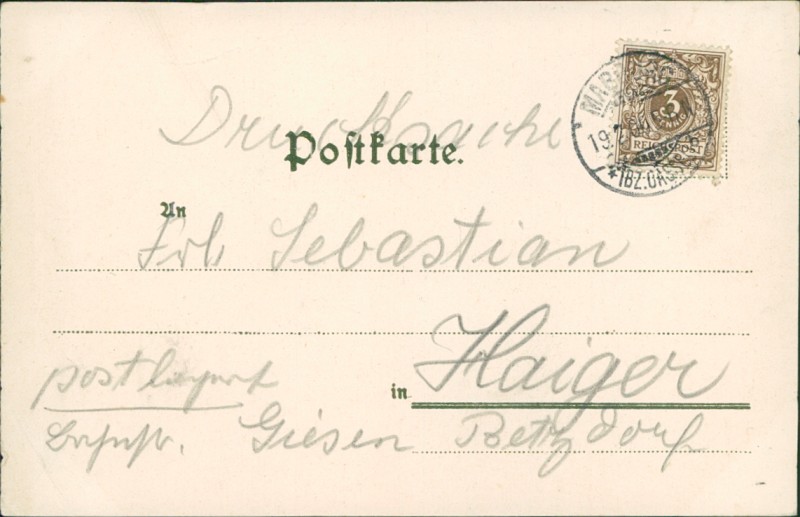 Drucksache
Postkarte.
3
PFENNIG
REICHSPOST
MAR
19
*(BZ.CAS
An
Frl. Sebastian
in Haiger
postlagernd
Giesen Betzdorf